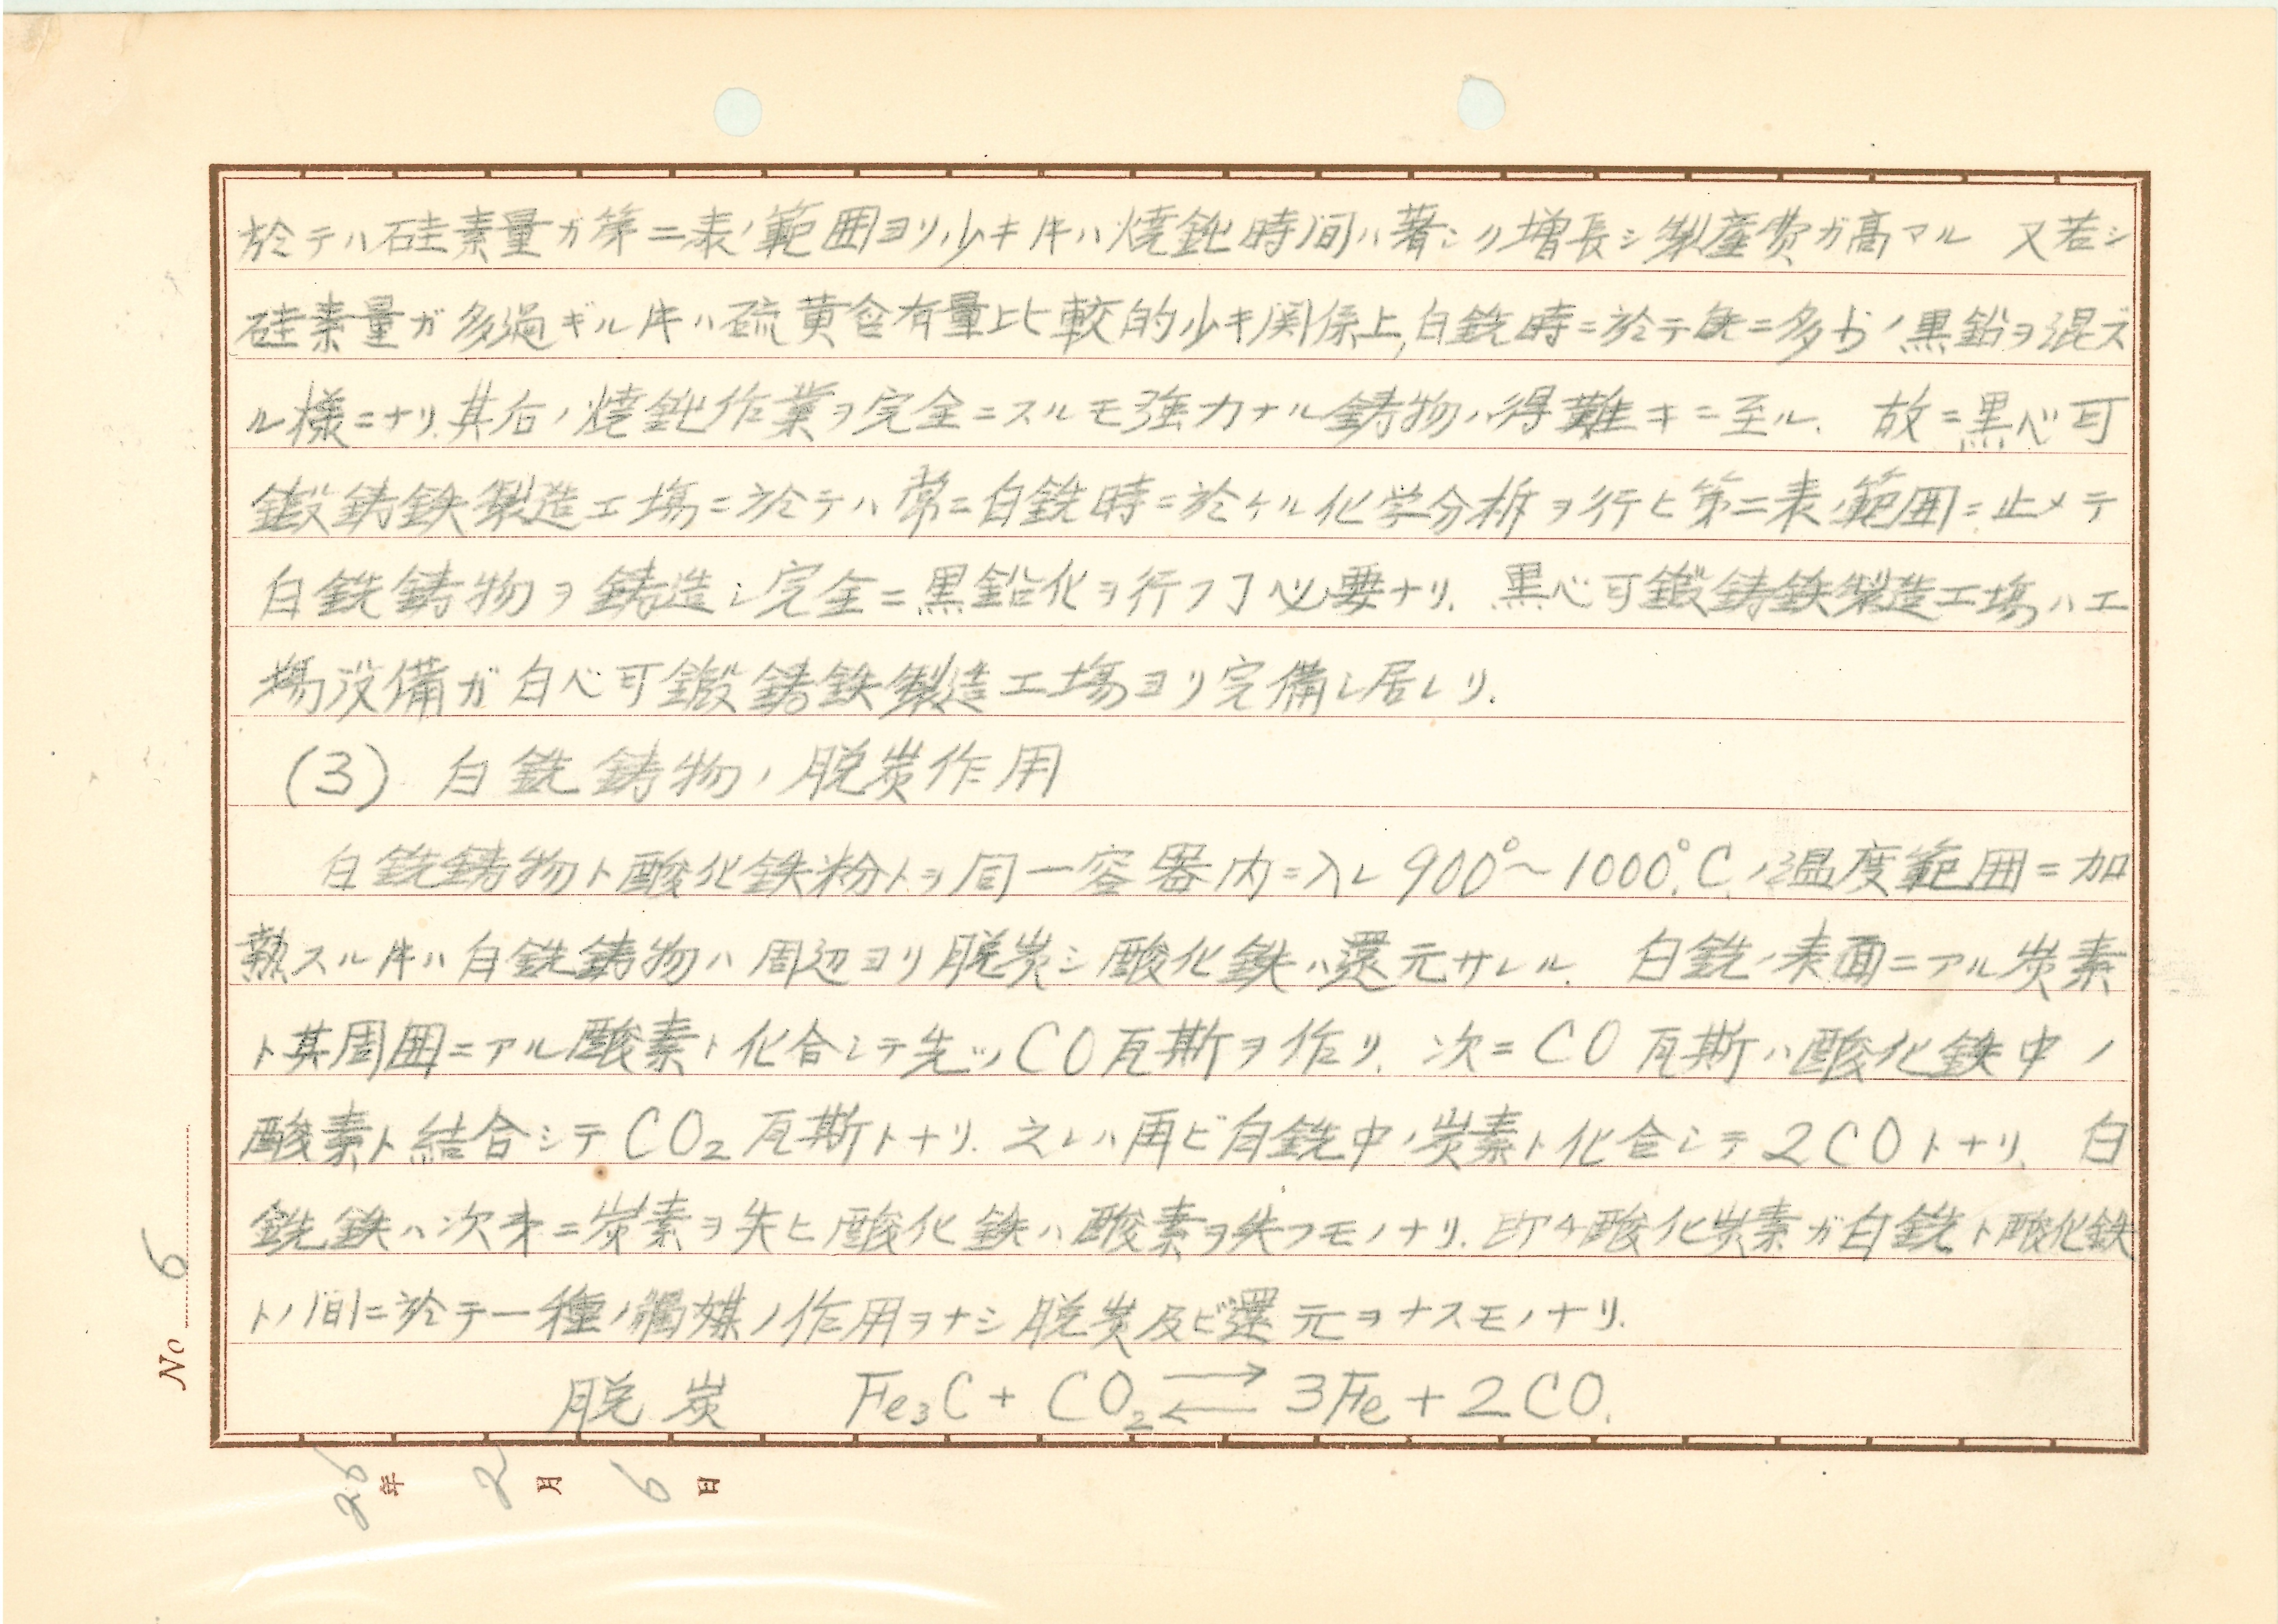 於テハ硅素量ガ第二表ノ範囲ヨリ少キ𪜈ハ焼鈍時間ハ著シク増長シ製産費ガ高マル 又若シ
硅素量ガ多過ギル𪜈ハ硫黄含有量比較的少キ関係上,白銑時ニ於テ既ニ多少ノ黒鉛ヲ混ズ
ル様ニナリ.其后ノ焼鈍作業ヲ完全ニスルモ強力ナル鋳物ハ得難キニ至ル. 故ニ黒心可
鍛鋳鉄製造工場ニ於テハ常ニ白銑時ニ於ケル化学分析ヲ行ヒ第二表ノ範囲ニ止メテ
白銑鋳物ヲ鋳造シ完全ニ黒鉛化ヲ行フヿ必要ナリ. 黒心可鍛鋳鉄製造工場ハ工
場設備ガ白心可鍛鋳鉄製造工場ヨリ完備シ居レリ.
(3) 白銑鋳物ノ脱炭作用
白銑鋳物ト酸化鉄粉トヲ同一容器内ニ入レ 900°~1000°C.ノ温度範囲ニ加
熱スル𪜈ハ白銑鋳物ハ周辺ヨリ脱炭シ酸化鉄ハ還元サレル. 白銑ノ表面ニアル炭素
ト其周囲ニアル酸素ト化合シテ先ヅCO瓦斯ヲ作リ. 次ニCO瓦斯ハ酸化鉄中ノ
酸素ト結合シテCO₂瓦斯トナリ.之レハ再ビ白銑中ノ炭素ト化合シテ2COトナリ、白
銑鉄ハ次第ニ炭素ヲ失ヒ酸化鉄ハ酸素ヲ失フモノナリ.即チ酸化炭素ガ白銑ト酸化鉄
トノ間ニ於テ一種ノ觸媒ノ作用ヲナシ脱炭及ビ還元ヲナスモノナリ.
脱炭 Fe₃C + CO₂ ⇄ 3Fe + 2CO.
No 6
25年 2月 6日